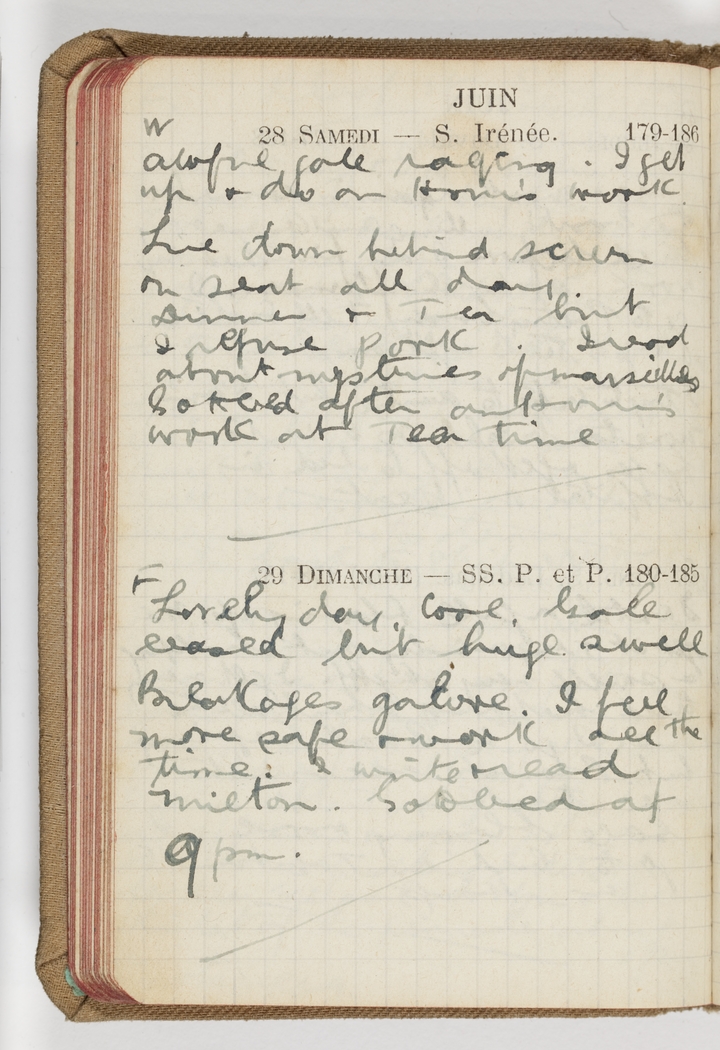 JUIN
W
28 SAMEDI — S. Irénée. 179-186
awful gale raging . I get
up & do an Hour's work.
Lie down behind screen
on seat all day.
Dinner & Tea but
I refuse pork . I read
about mysteries of marseilles
Go to bed after an Hour's
work at Tea time
F
29 DIMANCHE — SS. P. et P. 180-185
Lovely day, cool, Gale
eased but huge swell
Breakages galore. I feel
more safe & work all the
time. I write & read
Milton. Go to bed at
9 pm.